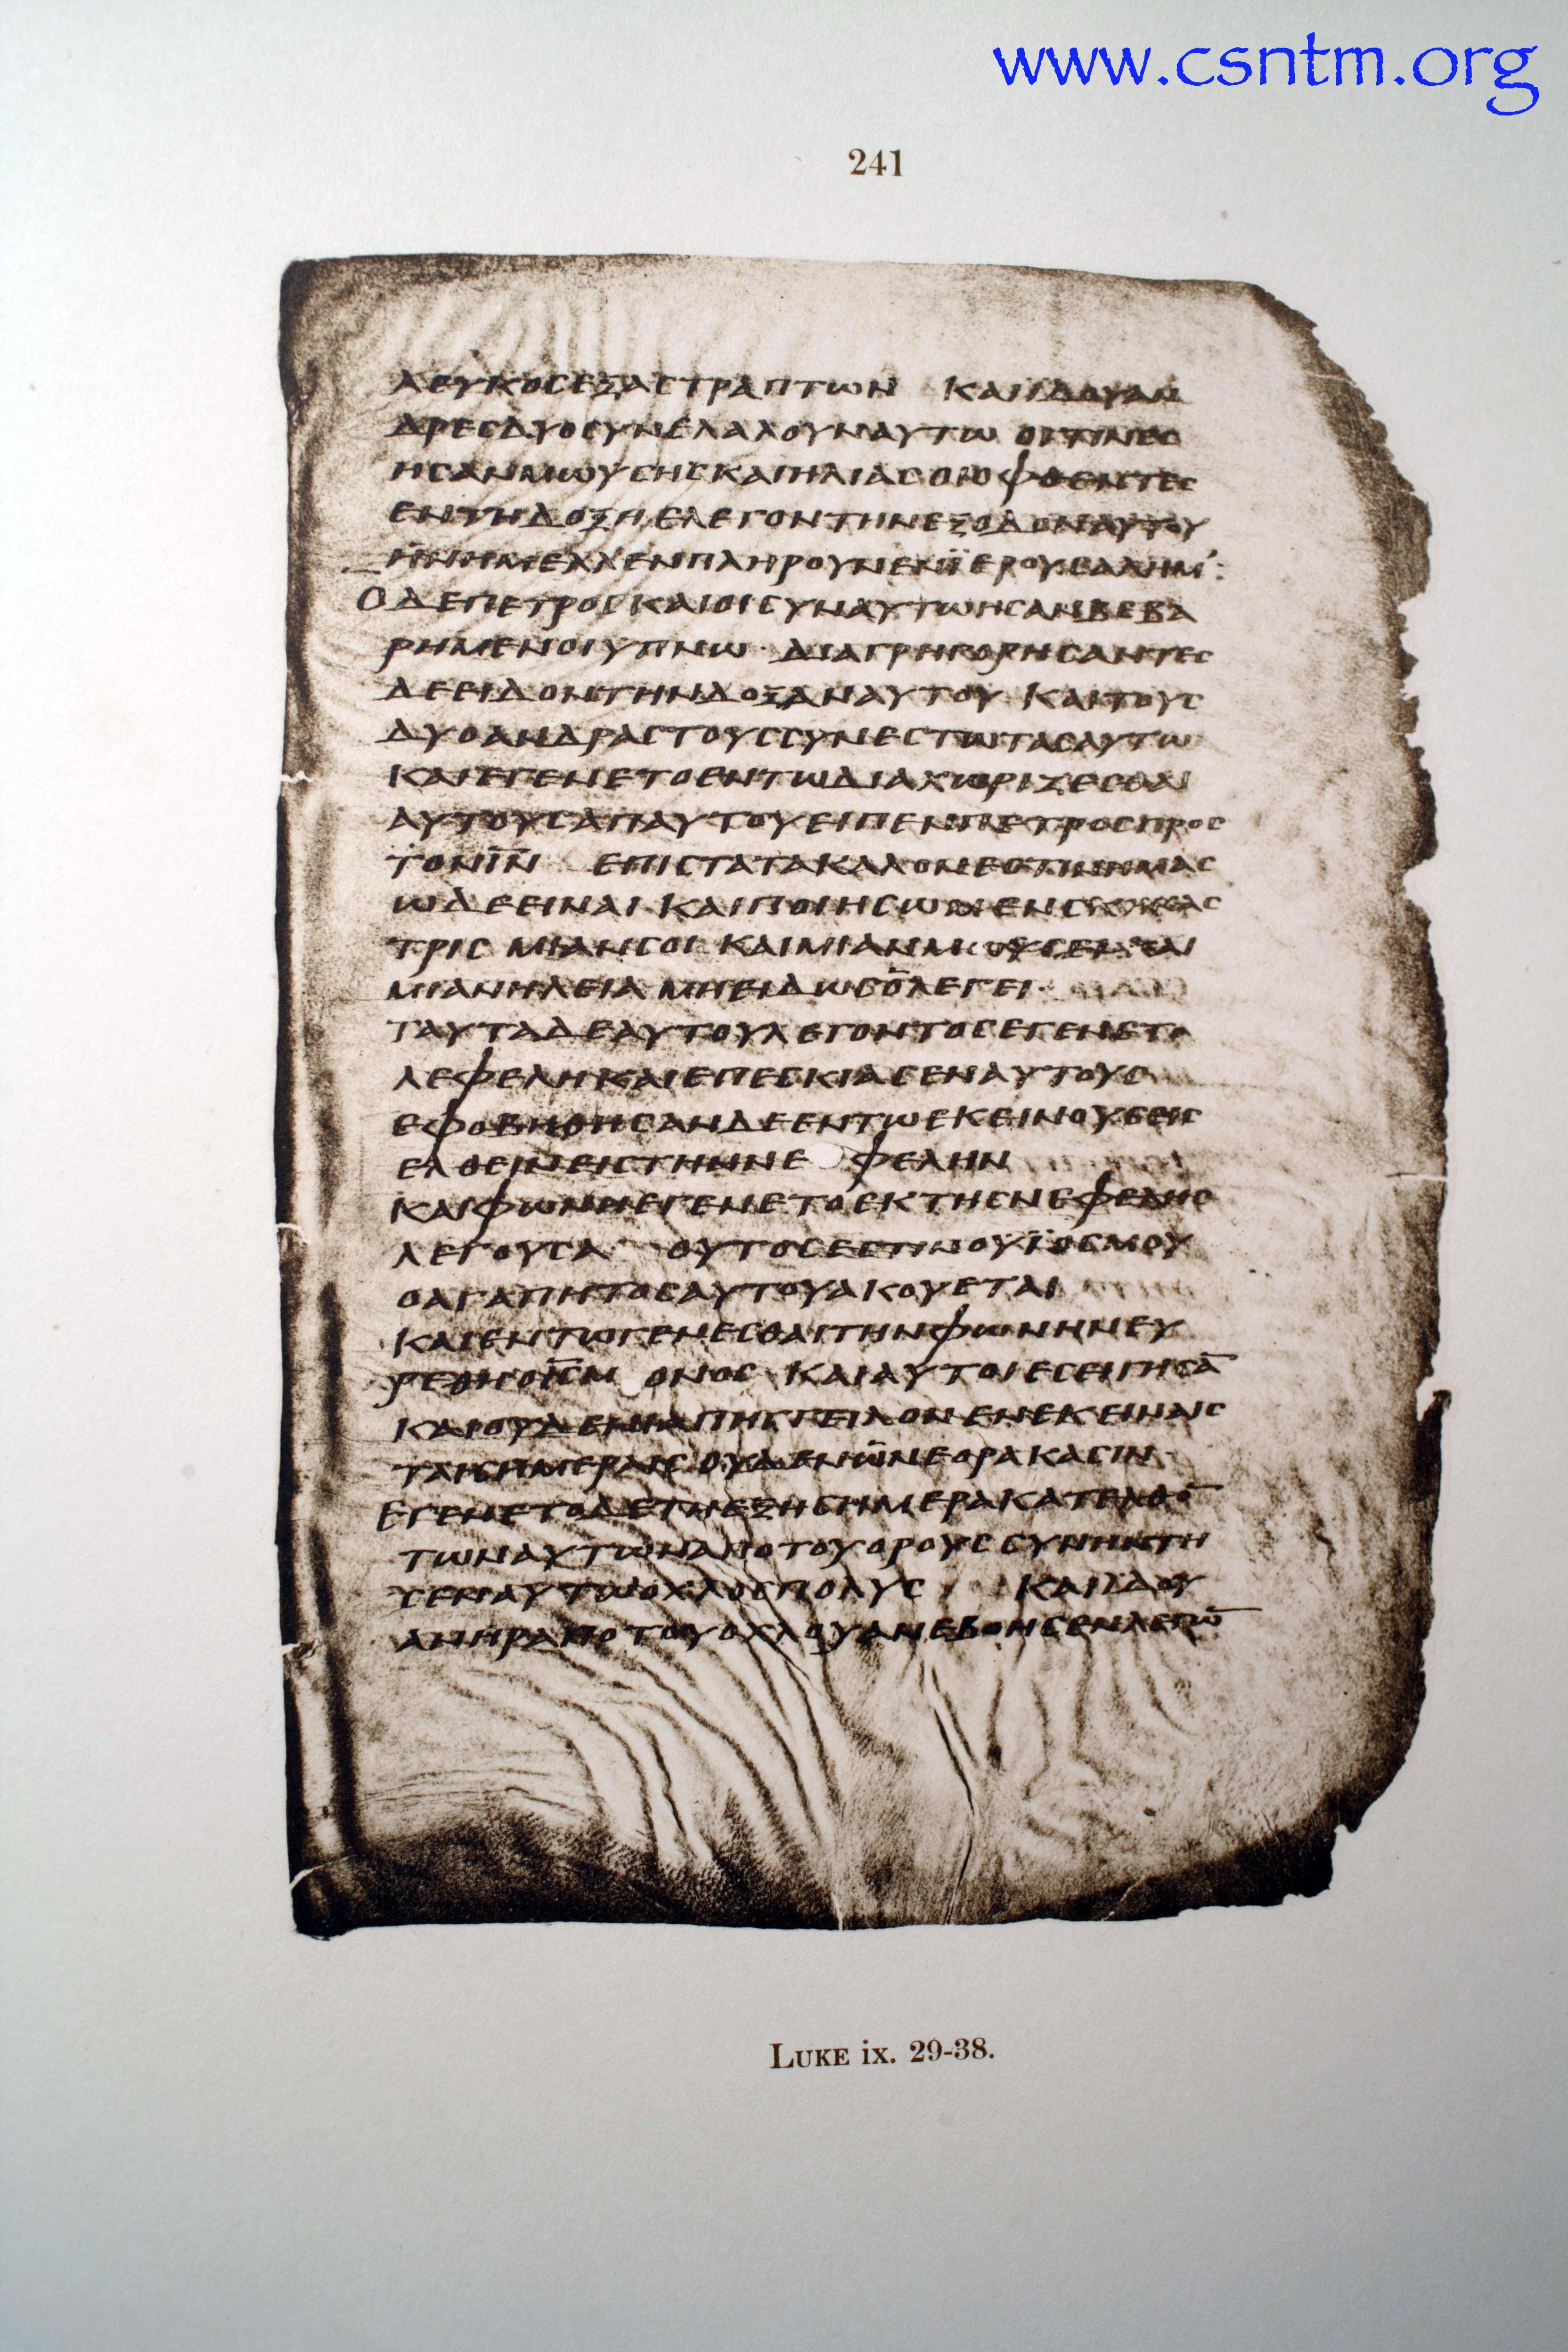 www.csntm.org
241
ΛΕΥΚΟСΕΞΑСΤΡΑΠΤΩΝ ΚΑΙΙΔΟΥΑΝ
ΔΡΕСΔΥΟСΥΝΕΛΑΛΟΥΝΑΥΤΩ ΟΙΤΙΝΕС
ΗСΑΝΜΩΥСΗСΚΑΙΗΛΙΑС ΟΙΟΦΘΕΝΤΕС
ΕΝΤΗΔΟΞΗΕΛΕΓΟΝΤΗΝΕΞΟΔΟΝΑΥΤΟΥ
ΗΝΗΜΕΛΛΕΝΠΛΗΡΟΥΝΕΝΪΕΡΟΥСΑΛΗΜ:
ΟΔΕΠΕΤΡΟСΚΑΙΟΙСΥΝΑΥΤΩΗСΑΝΒΕΒΑ
ΡΗΜΕΝΟΙΥΠΝΩ· ΔΙΑΓΡΗΓΟΡΗСΑΝΤΕС
ΔΕΕΙΔΟΝΤΗΝΔΟΞΑΝΑΥΤΟΥ ΚΑΙΤΟΥС
ΔΥΟΑΝΔΡΑСΤΟΥССΥΝΕСΤΩΤΑСΑΥΤΩ
ΚΑΙΕΓΕΝΕΤΟΕΝΤΩΔΙΑΧΩΡΙΖΕСΘΑΙ
ΑΥΤΟΥСΑΠΑΥΤΟΥΕΙΠΕΝΠΕΤΡΟСΠΡΟС
ΤΟΝΙ̅Ν̅ ΕΠΙСΤΑΤΑΚΑΛΟΝΕСΤΙΝΗΜΑС
ΩΔΕΕΙΝΑΙ ΚΑΙΠΟΙΗСΩΜΕΝСΚΗΝΑС
ΤΡΙС ΜΙΑΝСΟΙ ΚΑΙΜΙΑΝΜΩΥСΕΙΚΑΙ
ΜΙΑΝΗΛΕΙΑ ΜΗΕΙΔΩСΟ̅ΛΕΓΕΙ·
ΤΑΥΤΑΔΕΑΥΤΟΥΛΕΓΟΝΤΟСΕΓΕΝΕΤΟ
ΛΕΦΕΛΗΚΑΙΕΠΕСΚΙΑСΕΝΑΥΤΟΥС
ΕΦΟΒΗΘΗСΑΝΔΕΕΝΤΩΕΚΕΙΝΟΥСΕΙС
ΕΛΘΕΙΝΕΙСΤΗΝΝΕ ΦΕΛΗΝ
ΚΑΙΦΩΝΗΕΓΕΝΕΤΟΕΚΤΗСΝΕΦΕΛΗС
ΛΕΓΟΥСΑ ΟΥΤΟСΕСΤΙΝΟΥΪΟСΜΟΥ
ΟΑΓΑΠΗΤΟСΑΥΤΟΥΑΚΟΥΕΤΑΙ
ΚΑΙΕΝΤΩΓΕΝΕСΘΑΙΤΗΝΦΩΝΗΝΕΥ
ΡΕΘΗΟΙ̅С̅Μ ΟΝΟС ΚΑΙΑΥΤΟΙΕСΕΙΓΗСΑ̅
ΚΑΙΟΥΔΕΝΙΑΠΗΓΓΕΙΛΟΝΕΝΕΚΕΙΝΑΙС
ΤΑΙСΗΜΕΡΑΙС ΟΥΔΕΝΩΝΕΟΡΑΚΑСΙΝ
ΕΓΕΝΕΤΟΔΕΤΗΕΞΗСΗΜΕΡΑΚΑΤΕΛΘΟ̅
ΤΩΝΑΥΤΩΝΑΠΟΤΟΥΟΡΟΥС СΥΝΗΝΤΗ
СΕΝΑΥΤΩΟΧΛΟСΠΟΛΥС ΚΑΙΙΔΟΥ
ΑΝΗΡΑΠΟΤΟΥΟΧΛΟΥΑΝΕΒΟΗСΕΝΛΕΓΩ̅
LUKE ix. 29-38.